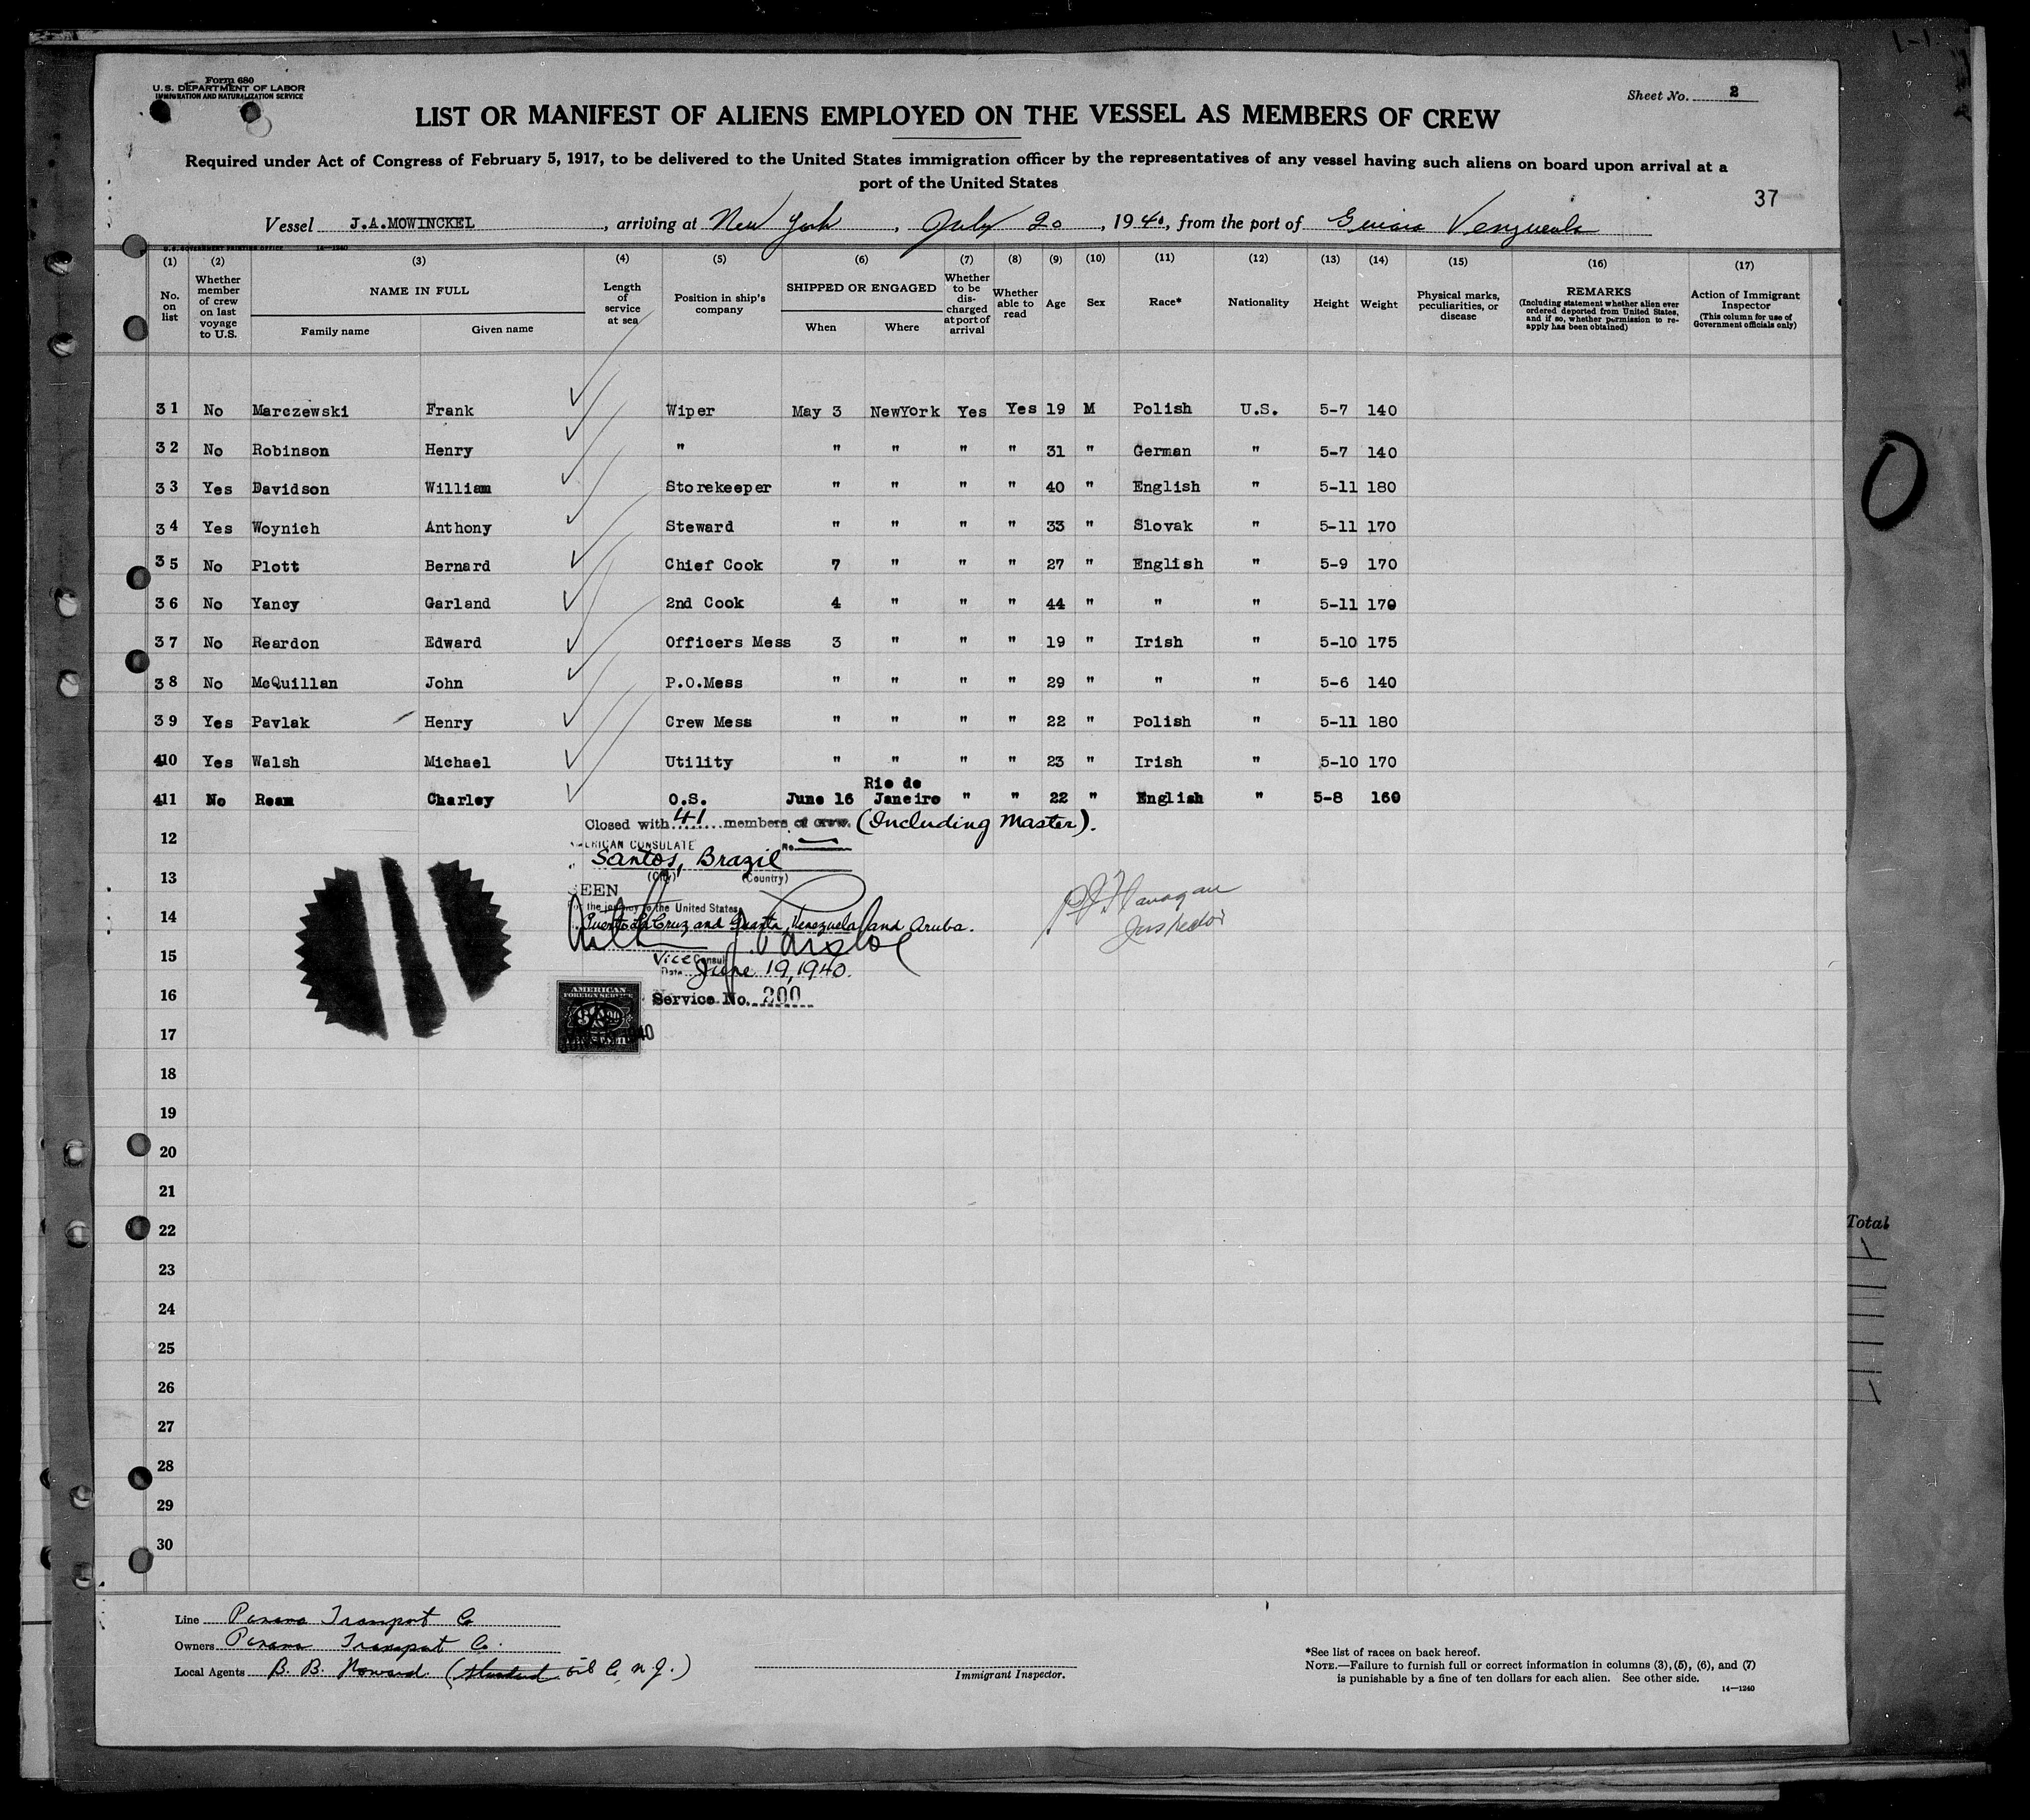 Form 680
U.S. DEPARTMENT OF LABOR
IMMIGRATION AND NATURALIZATION SERVICE
Sheet No. 2
LIST OR MANIFEST OF ALIENS EMPLOYED ON THE VESSEL AS MEMBERS OF CREW
Required under Act of Congress of February 5, 1917, to be delivered to the United States immigration officer by the representatives of any vessel having such aliens on board upon arrival at a
port of the United States
37
Vessel J.A.MOWINCKEL, arriving at New York, July 20, 1940, from the port of
U.S. GOVERNMENT PRINTING OFFICE 14-1240
(1) (2) (3) (4) (5) (6) (7) (8) (9) (10) (11) (12) (13) (14) (15) (16) (17)
No. on list
Whether member of crew on last voyage to U.S.
NAME IN FULL
Family name
Given name
Length of service at sea
Position in ship's company
SHIPPED OR ENGAGED
When
Where
Whether to be discharged at port of arrival
Whether able to read
Age
Sex
Race*
Nationality
Height
Weight
Physical marks, peculiarities, or disease
REMARKS
(Including statement whether alien ever ordered deported from United States, and if so, whether permission to reapply has been obtained)
Action of Immigrant Inspector
(This column for use of Government officials only)
31 No Marczewski Frank Wiper May 3 NewYork Yes Yes 19 M Polish U.S. 5-7 140
32 No Robinson Henry " " " " " 31 " German " 5-7 140
33 Yes Davidson William Storekeeper " " " " 40 " English " 5-11 180
34 Yes Woynich Anthony Steward " " " " 33 " Slovak " 5-11 170
35 No Plott Bernard Chief Cook 7 " " " 27 " English " 5-9 170
36 No Yancy Garland 2nd Cook 4 " " " 44 " " " 5-11 170
37 No Reardon Edward Officers Mess 3 " " " 19 " Irish " 5-10 175
38 No McQuillan John P.O.Mess " " " " 29 " " " 5-6 140
39 Yes Pavlak Henry Crew Mess " " " " 22 " Polish " 5-11 180
40 Yes Walsh Michael Utility " " " " 23 " Irish " 5-10 170
41 No Ream Charley O.S. June 16 Rio de Janeiro " " 22 " English " 5-8 160
Closed with 41 members of crew. (Including Master).
12
AMERICAN CONSULATE No.
Santos, Brazil
(City) (Country)
13
SEEN
For the journey to the United States
14
Puerto La Cruz and Guanta, Venezuela and Aruba.
Inspector
15
Vice Consul
Date June 19, 1940.
16
AMERICAN
FOREIGN SERVICE
Service No. 200
17
1940
18
19
20
21
22
23
24
25
26
27
28
29
30
Total
Line Panama Transport Co
Owners Panama Transport Co.
Local Agents B. B. Howard (Standard Oil Co, N.J.)
Immigrant Inspector.
*See list of races on back hereof.
NOTE.—Failure to furnish full or correct information in columns (3), (5), (6), and (7)
is punishable by a fine of ten dollars for each alien. See other side.
14—1240